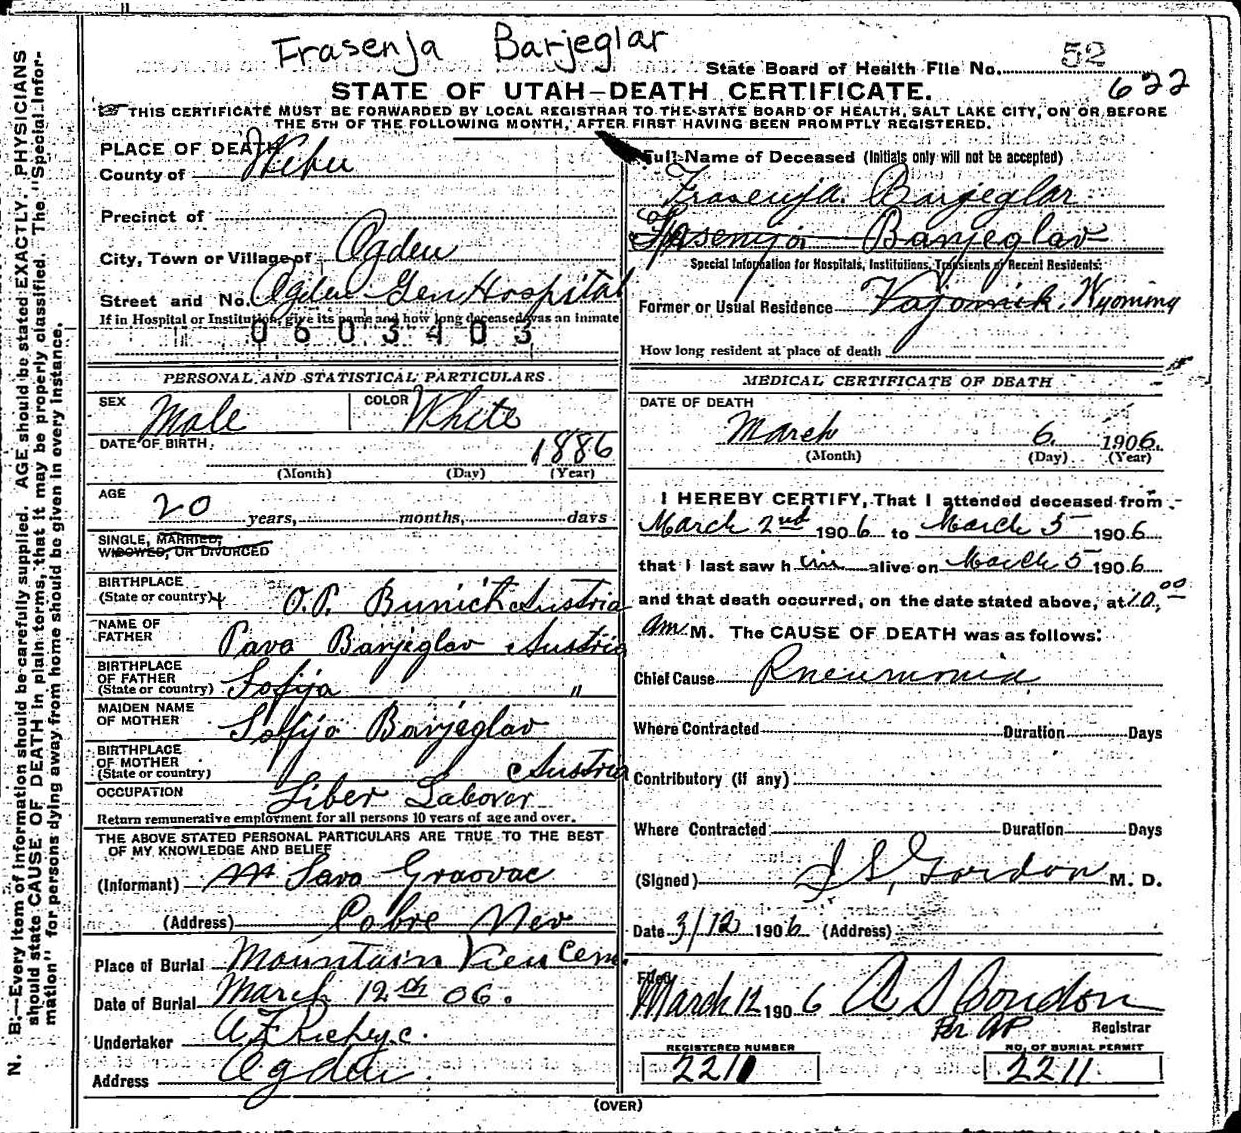 Frasenja Barjeglar
State Board of Health File No. 52
622
STATE OF UTAH—DEATH CERTIFICATE.
THIS CERTIFICATE MUST BE FORWARDED BY LOCAL REGISTRAR TO THE STATE BOARD OF HEALTH, SALT LAKE CITY, ON OR BEFORE
THE 5TH OF THE FOLLOWING MONTH, AFTER FIRST HAVING BEEN PROMPTLY REGISTERED.
N. B.—Every item of information should be carefully supplied. AGE should be stated EXACTLY. PHYSICIANS
should state CAUSE OF DEATH in plain terms, that it may be properly classified. The "Special Infor-
mation" for persons dying away from home should be given in every instance.
PLACE OF DEATH
County of Weber
Precinct of
City, Town or Village of Ogden
Street and No. Ogden Gen Hospital
If in Hospital or Institution, give its name and how long deceased was an inmate
0603403
PERSONAL AND STATISTICAL PARTICULARS.
SEX Male COLOR White
DATE OF BIRTH 1886
(Month) (Day) (Year)
AGE
20 years, months, days
SINGLE, MARRIED,
WIDOWED, OR DIVORCED
BIRTHPLACE
(State or country) O.P. Bunich Austria
NAME OF
FATHER Pava Barjeglav Austria
BIRTHPLACE
OF FATHER
(State or country) Sofija "
MAIDEN NAME
OF MOTHER Soffijo Barjeglav
BIRTHPLACE
OF MOTHER
(State or country) Austria
OCCUPATION Liber Laborer
Return remunerative employment for all persons 10 years of age and over.
THE ABOVE STATED PERSONAL PARTICULARS ARE TRUE TO THE BEST
OF MY KNOWLEDGE AND BELIEF
(Informant) Savo Graovac
(Address) Cobre Nev
Place of Burial Mountain View Cem.
Date of Burial March 12th 06.
Undertaker
Address Ogden
Full Name of Deceased (Initials only will not be accepted)
Frasenja Barjeglar
Barjeglav
Special Information for Hospitals, Institutions, Transients or Recent Residents:
Former or Usual Residence Wyoming
How long resident at place of death
MEDICAL CERTIFICATE OF DEATH
DATE OF DEATH
March 6. 1906.
(Month) (Day) (Year)
I HEREBY CERTIFY, That I attended deceased from
March 2nd 1906 to March 5 1906
that I last saw him alive on March 5 1906
and that death occurred, on the date stated above, at 10.00
am M. The CAUSE OF DEATH was as follows:
Chief Cause Pneumonia
Where Contracted Duration Days
Contributory (if any)
Where Contracted Duration Days
(Signed) Gordon M. D.
Date 3/12 1906 (Address)
Filed
March 12 1906 Condon
Per AP Registrar
REGISTERED NUMBER 2211
NO. OF BURIAL PERMIT 2211
(OVER)